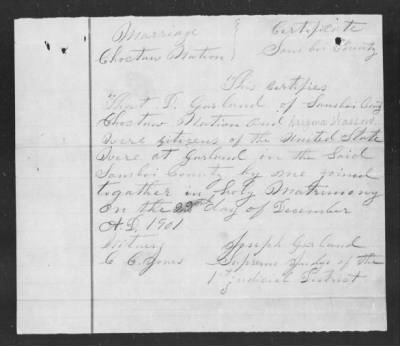 Marriage } Certificate
Choctaw Nation } Sans boi County
This Certifies
That D. Garland of Sansboi County
Choctaw Nation and
were citizens of the United State
were at Garland in the Said
Sansboi County by me joined
together in holy Matrimony
On the 22nd day of December
A.D. 1901
Witness Joseph Garland
C C. Jones Supreme Judge of the
1st Judicial District